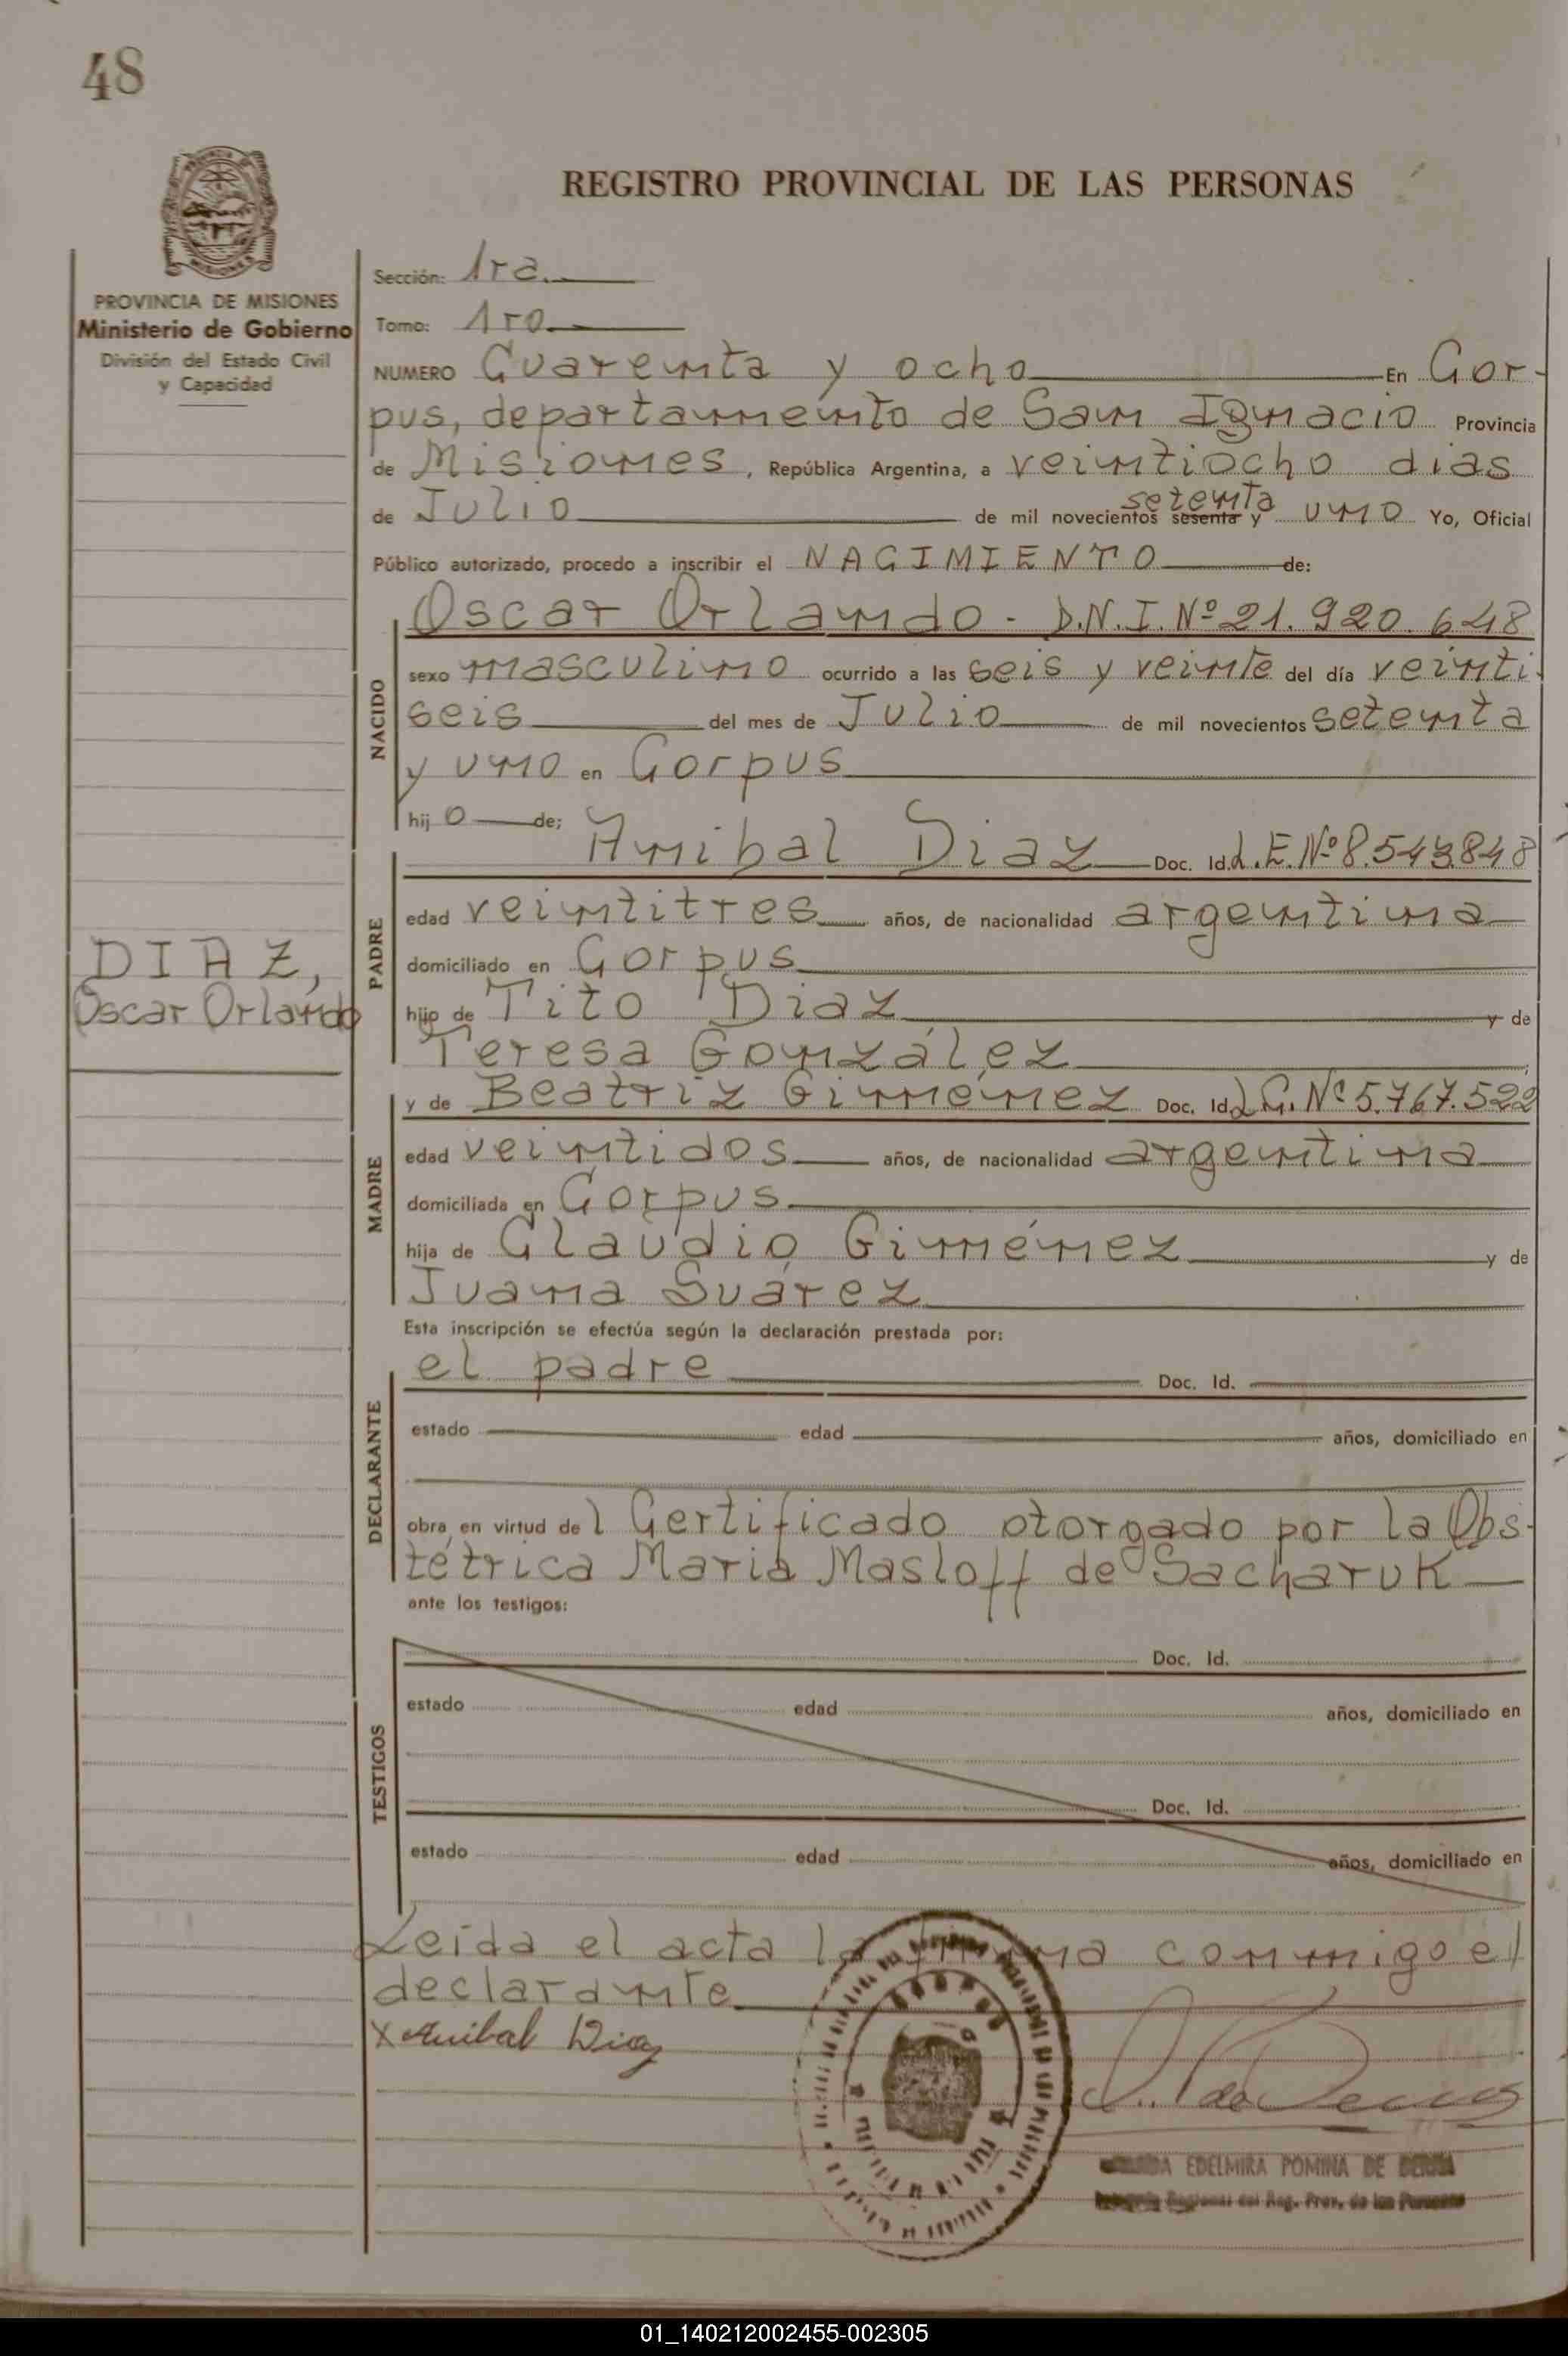 48
REGISTRO PROVINCIAL DE LAS PERSONAS
MISIONES
PROVINCIA DE MISIONES
Ministerio de Gobierno
División del Estado Civil
y Capacidad
Sección: 1ra.
Tomo: 1ro.
NUMERO Cuarenta y ocho En Cor-
pus, departamento de San Ignacio Provincia
de Misiones, República Argentina, a veintiocho dias
de Julio de mil novecientos sesenta setenta y uno Yo, Oficial
Público autorizado, procedo a inscribir el NACIMIENTO de:
Oscar Orlando - D.N.I. Nº 21.920.648
NACIDO
sexo masculino ocurrido a las seis y veinte del día veinti-
seis del mes de Julio de mil novecientos setenta
y uno en Corpus
hijo de;
Anibal Diaz Doc. Id. L.E. Nº 8.543.848
PADRE
edad veintitres años, de nacionalidad argentina
domiciliado en Corpus
hijo de Tito Diaz y de
Teresa González
DIAZ,
Oscar Orlando
y de Beatriz Giménez Doc. Id. L.C. Nº 5.767.522
MADRE
edad veintidos años, de nacionalidad argentina
domiciliada en Corpus
hija de Claudio Giménez y de
Juana Suárez
Esta inscripción se efectúa según la declaración prestada por:
el padre Doc. Id.
DECLARANTE
estado edad años, domiciliado en
obra en virtud del Certificado otorgado por la Obs-
tétrica Maria Masloff de Sacharuk
ante los testigos:
TESTIGOS
Doc. Id.
estado edad años, domiciliado en
Doc. Id.
estado edad años, domiciliado en
Leida el acta la firma conmigo el
declarante.
x Anibal Diaz
EDELMIRA POMINA DE
Regional del Reg. Prov. de las Personas
01_140212002455-002305